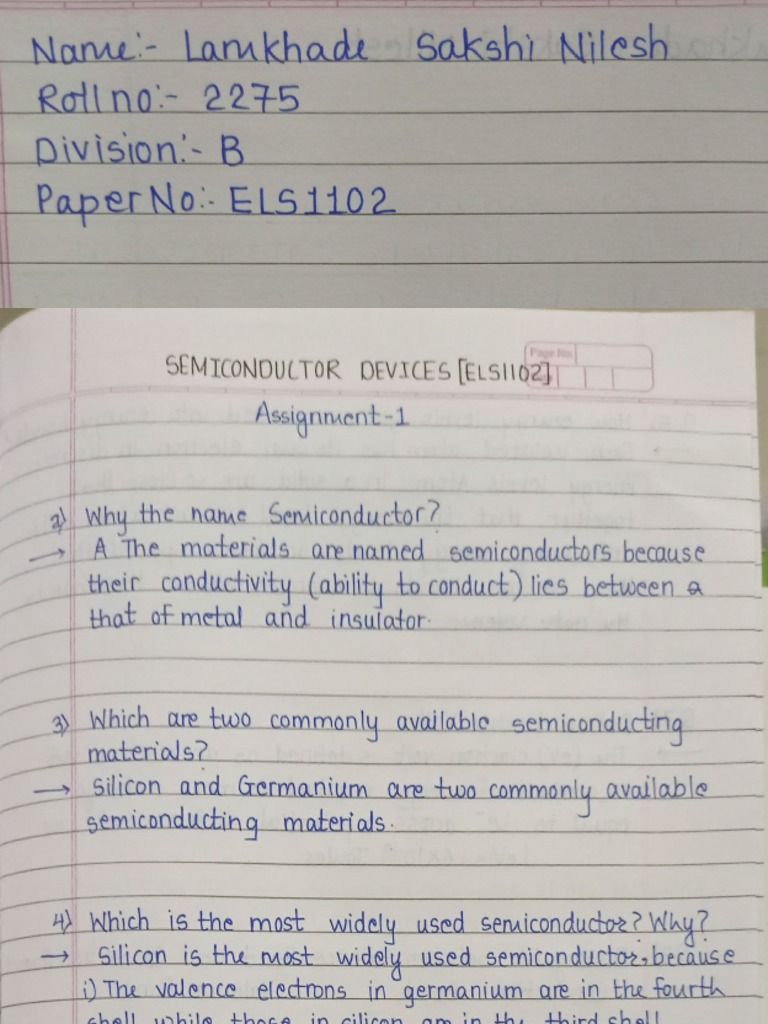 Name:- Lamkhade Sakshi Nilesh
Roll no:- 2275
Division:- B
Paper No:- ELS1102
Page No.
SEMICONDUCTOR DEVICES [ELS1102]
Assignment-1
2) Why the name Semiconductor?
→ A The materials are named semiconductors because
their conductivity (ability to conduct) lies between a
that of metal and insulator.
3) Which are two commonly available semiconducting
materials?
→ Silicon and Germanium are two commonly available
semiconducting materials.
4) Which is the most widely used semiconductor? Why?
→ Silicon is the most widely used semiconductor, because
i) The valence electrons in germanium are in the fourth
shell while those in silicon are in the third shell